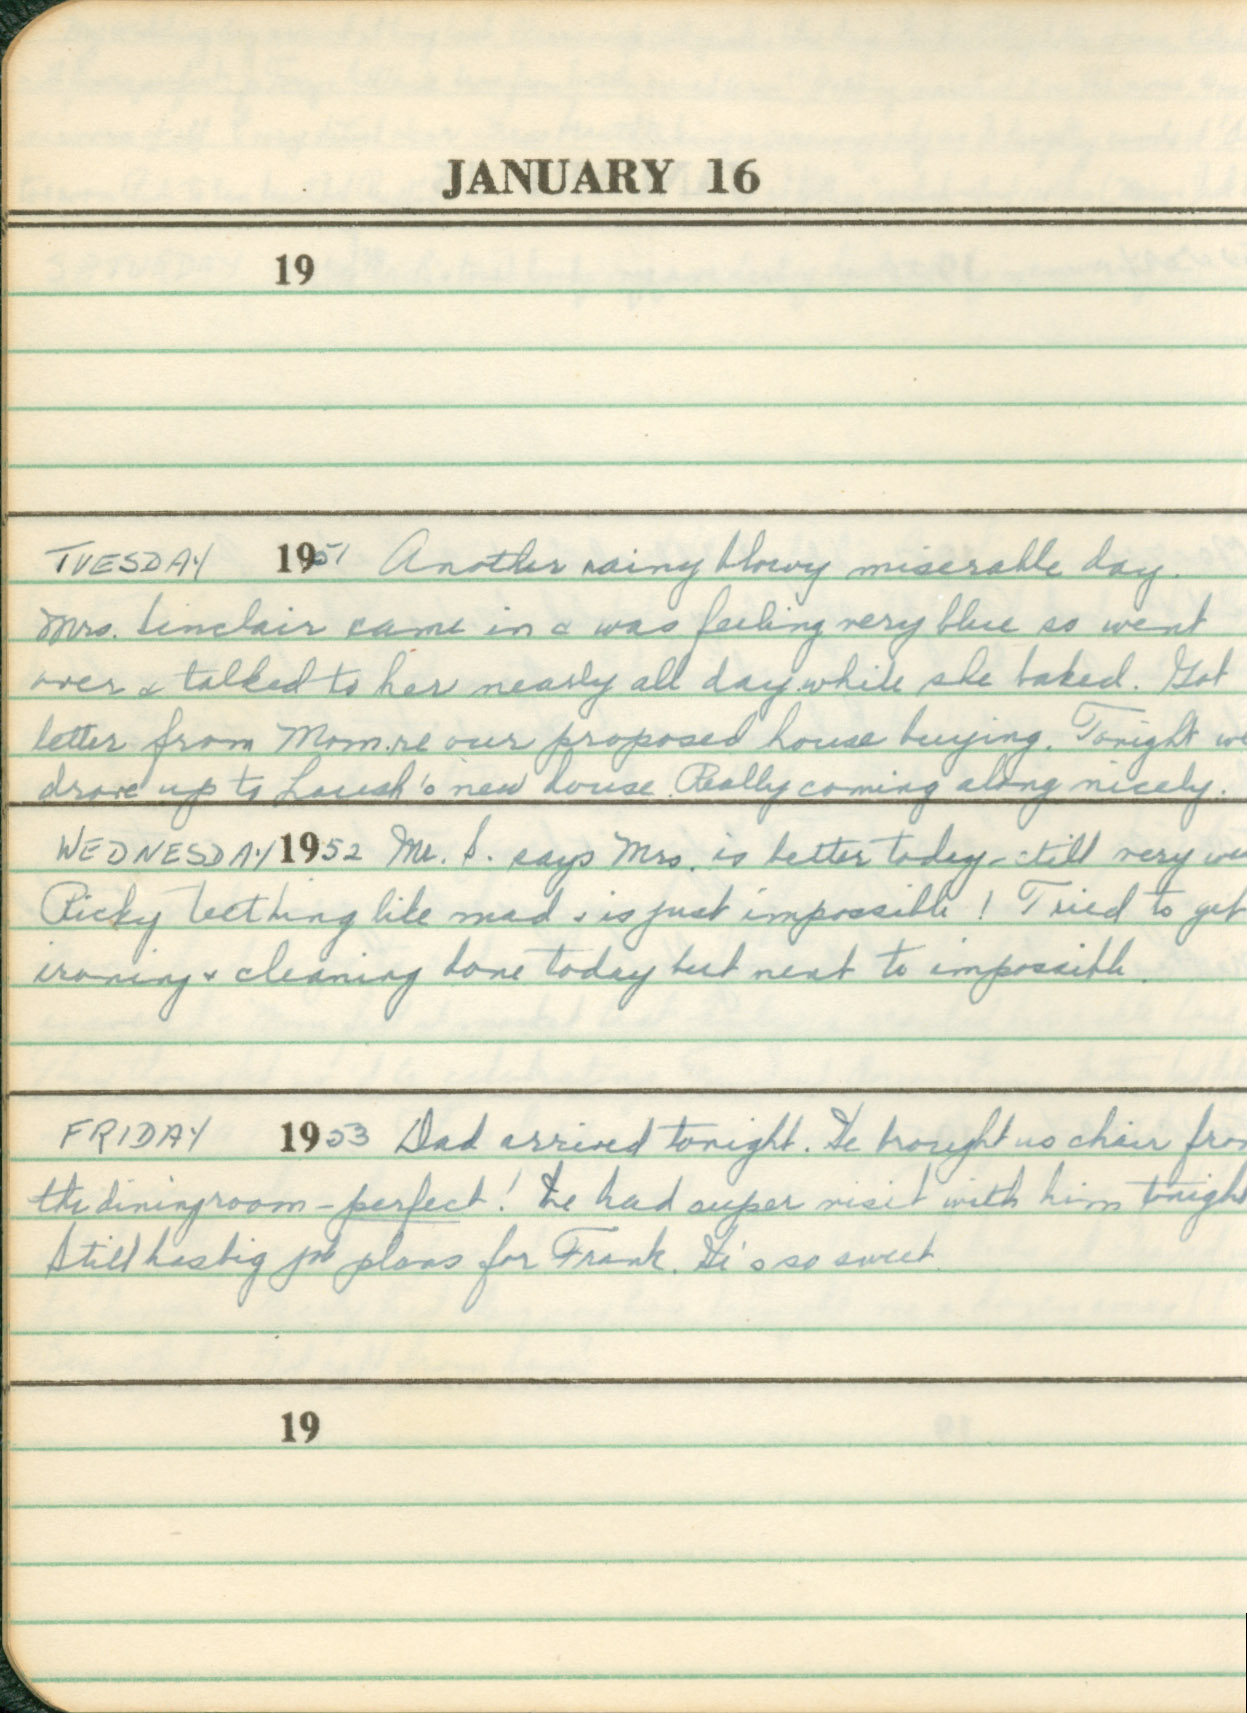 JANUARY 16
19
TUESDAY 1951 Another rainy blowy miserable day.
Mrs. Sinclair came in & was feeling very blue so went
over & talked to her nearly all day while she baked. Got
letter from Mom re our proposed house buying. Tonight we
drove up to new house. Really coming along nicely.
WEDNESDAY 1952 Mr. S. says Mrs. is better today - still very
Ricky teething like mad & is just impossible! Tried to get
ironing & cleaning done today but next to impossible.
FRIDAY 1953 Dad arrived tonight. He brought us chair from
the diningroom - perfect! We had super visit with him tonight
Still has big job plans for Frank. He's so sweet.
19